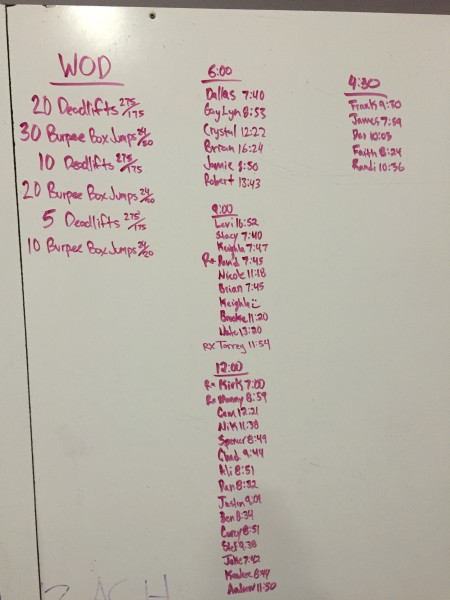 WOD
20 Deadlifts 275/175
30 Burpee Box Jumps 24/20
10 Deadlifts 275/175
20 Burpee Box Jumps 24/20
5 Deadlifts 275/175
10 Burpee Box Jumps 24/20
6:00
Dallas 7:40
GayLyn 8:53
Crystal 12:22
Brian 16:24
Jamie 8:50
Robert 13:43
9:00
Levi 16:52
Stacy 7:40
Keighla 7:47
Rx David 7:45
Nicole 11:18
Brian 7:45
Keighla
Brooke 11:20
Nate 13:20
RX Torrey 11:54
12:00
Rx Kirk 7:00
Rx Manny 8:59
Cam 12:21
Nik 11:38
Spencer 8:49
Chad 9:44
Ali 8:51
Dan 8:32
Justin 9:01
Ben 8:34
Corey 8:51
Stef 9:38
Jake 7:42
8:47
Andrew 11:50
4:30
Frank 9:30
James 7:59
10:03
Faith 8:24
Randi 10:36